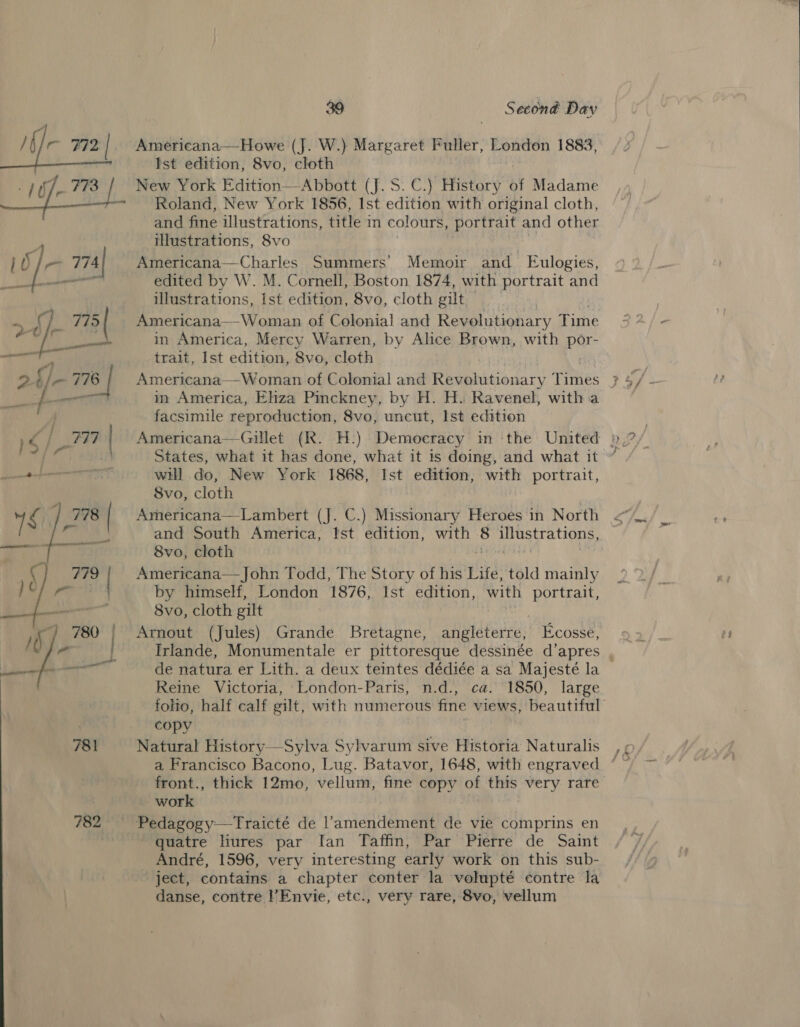 39 Second Day
16/- 772 Americana—Howe (J. W.) Margaret Fuller, London 1883,
1st edition, 8vo, cloth
16/- 773 New York Edition—Abbott (J. S. C.) History of Madame
Roland, New York 1856, 1st edition with original cloth,
and fine illustrations, title in colours, portrait and other
illustrations, 8vo
16/- 774 Americana—Charles Summers' Memoir and Eulogies,
edited by W. M. Cornell, Boston 1874, with portrait and
illustrations, 1st edition, 8vo, cloth gilt
775 Americana—Woman of Colonial and Revolutionary Time
in America, Mercy Warren, by Alice Brown, with por-
trait, 1st edition, 8vo, cloth
776 Americana—Woman of Colonial and Revolutionary Times
in America, Eliza Pinckney, by H. H. Ravenel, with a
facsimile reproduction, 8vo, uncut, 1st edition
777 Americana—Gillet (R. H.) Democracy in the United
States, what it has done, what it is doing, and what it
will do, New York 1868, 1st edition, with portrait,
8vo, cloth
778 Americana—Lambert (J. C.) Missionary Heroes in North
and South America, 1st edition, with 8 illustrations,
8vo, cloth
779 Americana—John Todd, The Story of his Life, told mainly
by himself, London 1876, 1st edition, with portrait,
8vo, cloth gilt
780 Arnout (Jules) Grande Bretagne, angleterre, Ecosse,
Irlande, Monumentale er pittoresque dessinée d'apres
de natura er Lith. a deux teintes dédiée a sa Majesté la
Reine Victoria, London-Paris, n.d., ca. 1850, large
folio, half calf gilt, with numerous fine views, beautiful
copy
781 Natural History—Sylva Sylvarum sive Historia Naturalis
a Francisco Bacono, Lug. Batavor, 1648, with engraved
front., thick 12mo, vellum, fine copy of this very rare
work
782 Pedagogy—Traicté de l'amendement de vie comprins en
quatre liures par Ian Taffin, Par Pierre de Saint
André, 1596, very interesting early work on this sub-
ject, contains a chapter conter la volupté contre la
danse, contre l'Envie, etc., very rare, 8vo, vellum